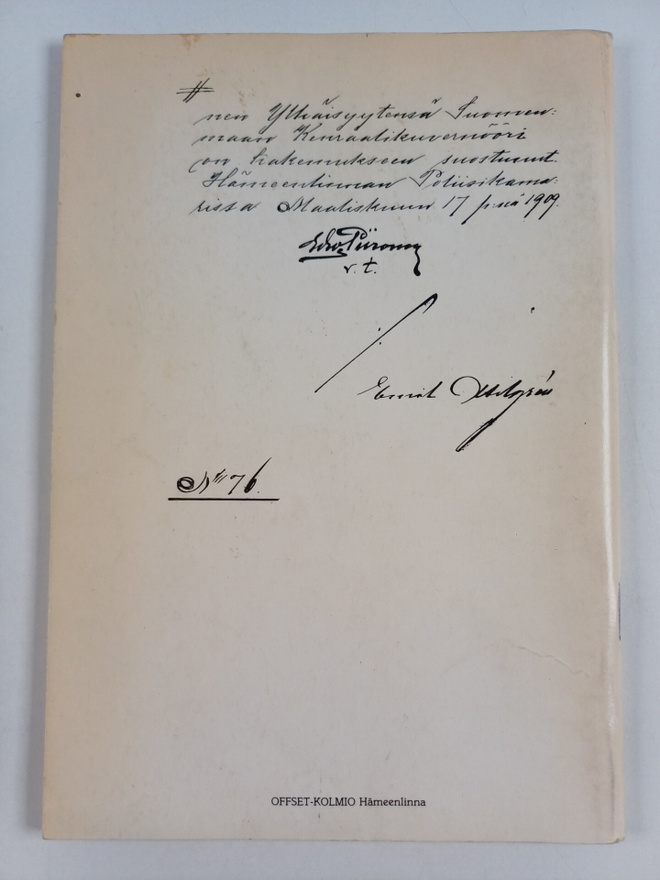 #
nen Ylhäisyytensä Suomen:
maan Kenraalikuvernööri
on hakemukseen suostunut.
Hämeenlinnan Poliisikama:
rissa Maaliskuun 17 p:nä 1909.
v. t.
Emil
No 76.
OFFSET-KOLMIO Hämeenlinna